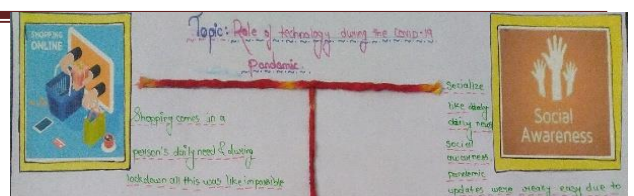 Topic: Role of technology during the Covid-19
Pandamic.
SHOPPING
ONLINE
Shopping comes in a
person's daily need & during
lockdown all this was like impossible
Socialize
like
dairy need
Social
awareness
pandemic
updates were really easy due to
Social
Awareness